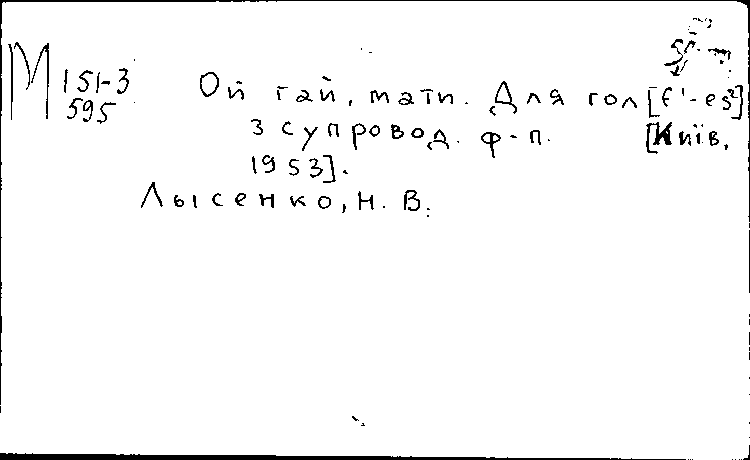 М 151-3
595
Ой гай, мати. Для гол[f'-es²]
з супровод. ф-п. [Київ,
1953].
Лысенко, Н. В.